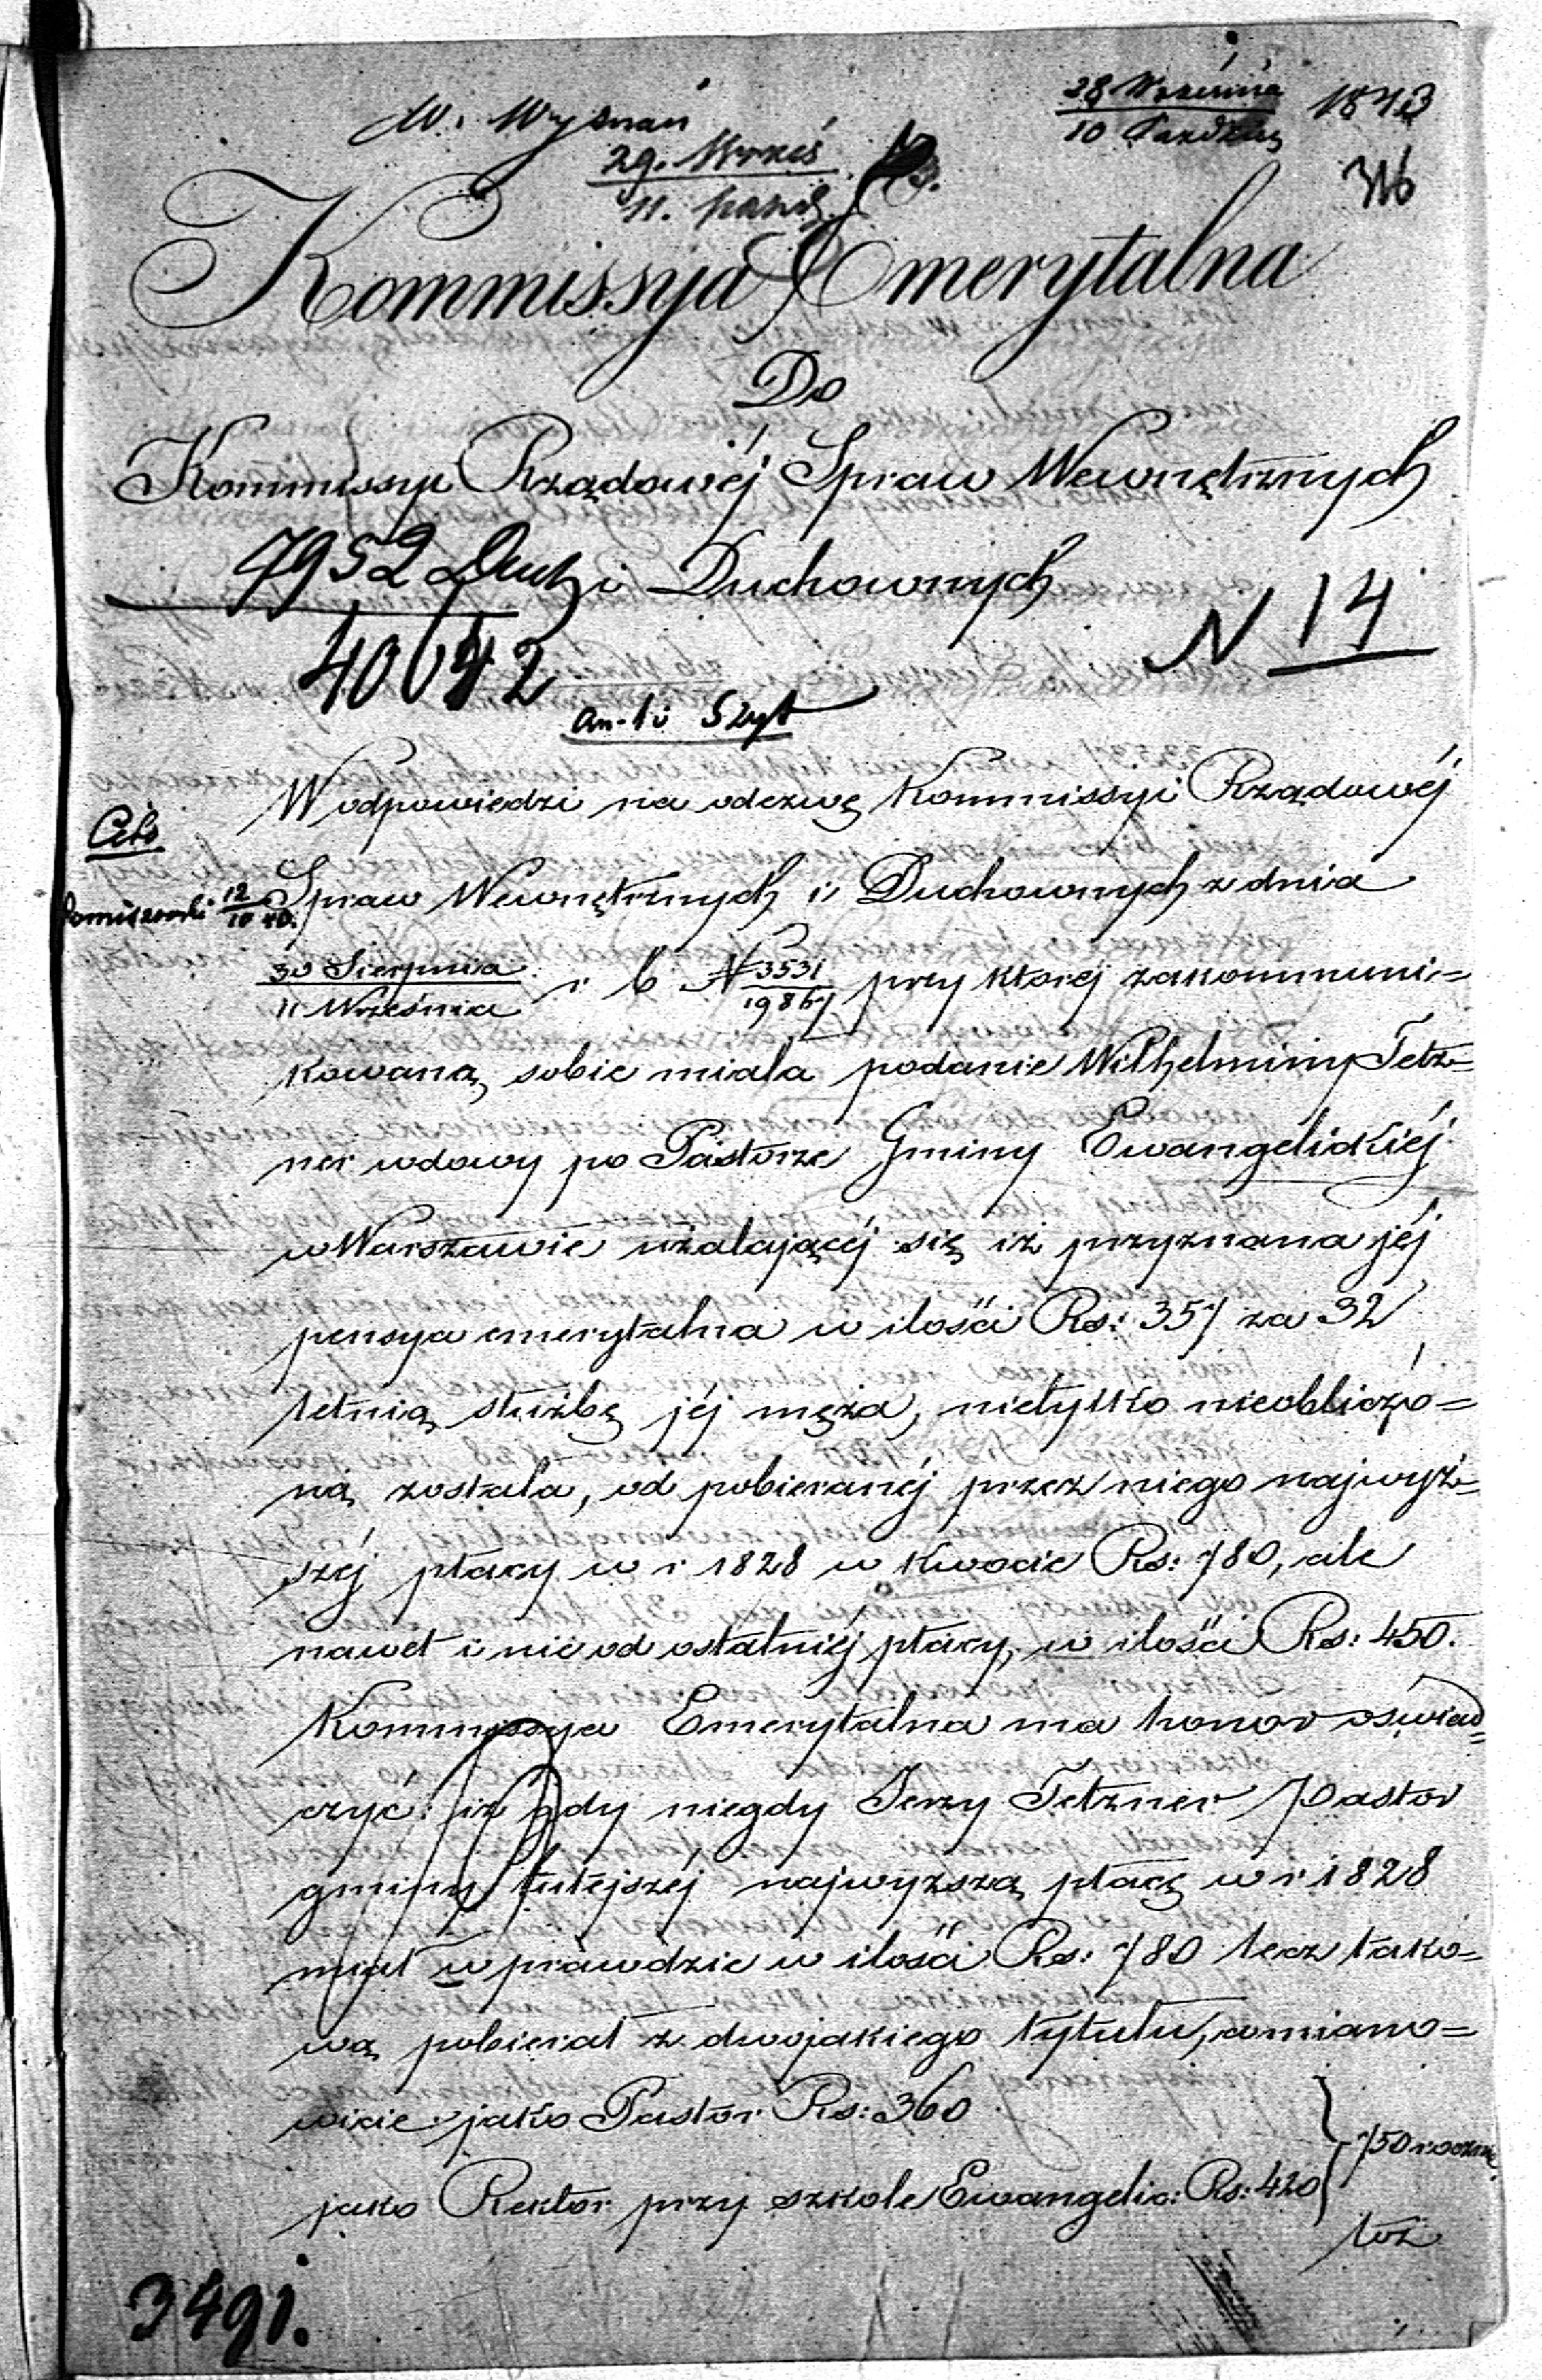 W. Wyznań
28 Września
10 Paździer
1843
29. Wrześ
11. paźdz
316
Kommissyja Emerytalna
Do
Kommissyi Rządowéj Spraw Wewnętrznych
7952 Duch i Duchownych
40642
N 14
Wodpowiedzi na odezwę Kommissyi Rządowéj
Cito
12/10 Spraw Wewnętrznych i Duchownych z dnia
30 Sierpnia
11 Września
r b N 3531/19867 przy której zakommuni=
kowaną sobie miała podanie Wilhelminy Tetz=
ner wdowy po Pastorze Gminy Ewangelickiéj
w Warszawie użalającéj się iż przyznana jéj
pensya emerytalna w ilości Rs: 357 za 32
letnią służbę jéj męża, nietylko nieobliczo=
ną została, od pobieranéj przez niego najwyż=
széj płacy w r 1828 w kwocie Rs: 780, ale
nawet i nie od ostatniéj płacy, w ilości Rs: 450.
Kommissya Emerytalna ma honor oświad=
czyć: iż gdy niegdy Jerzy Tetzner Pastor
gminy tutéjszéj najwyższą płacę w r 1828
miał w prawdzie w ilości Rs: 780 lecz tako=
wą pobierał z dwojakiego tytułu, a miano=
wicie jako Pastor Rs: 360
jako Rektor przy szkole Ewangelic: Rs: 420 } 750 rocznie
toż
3491.